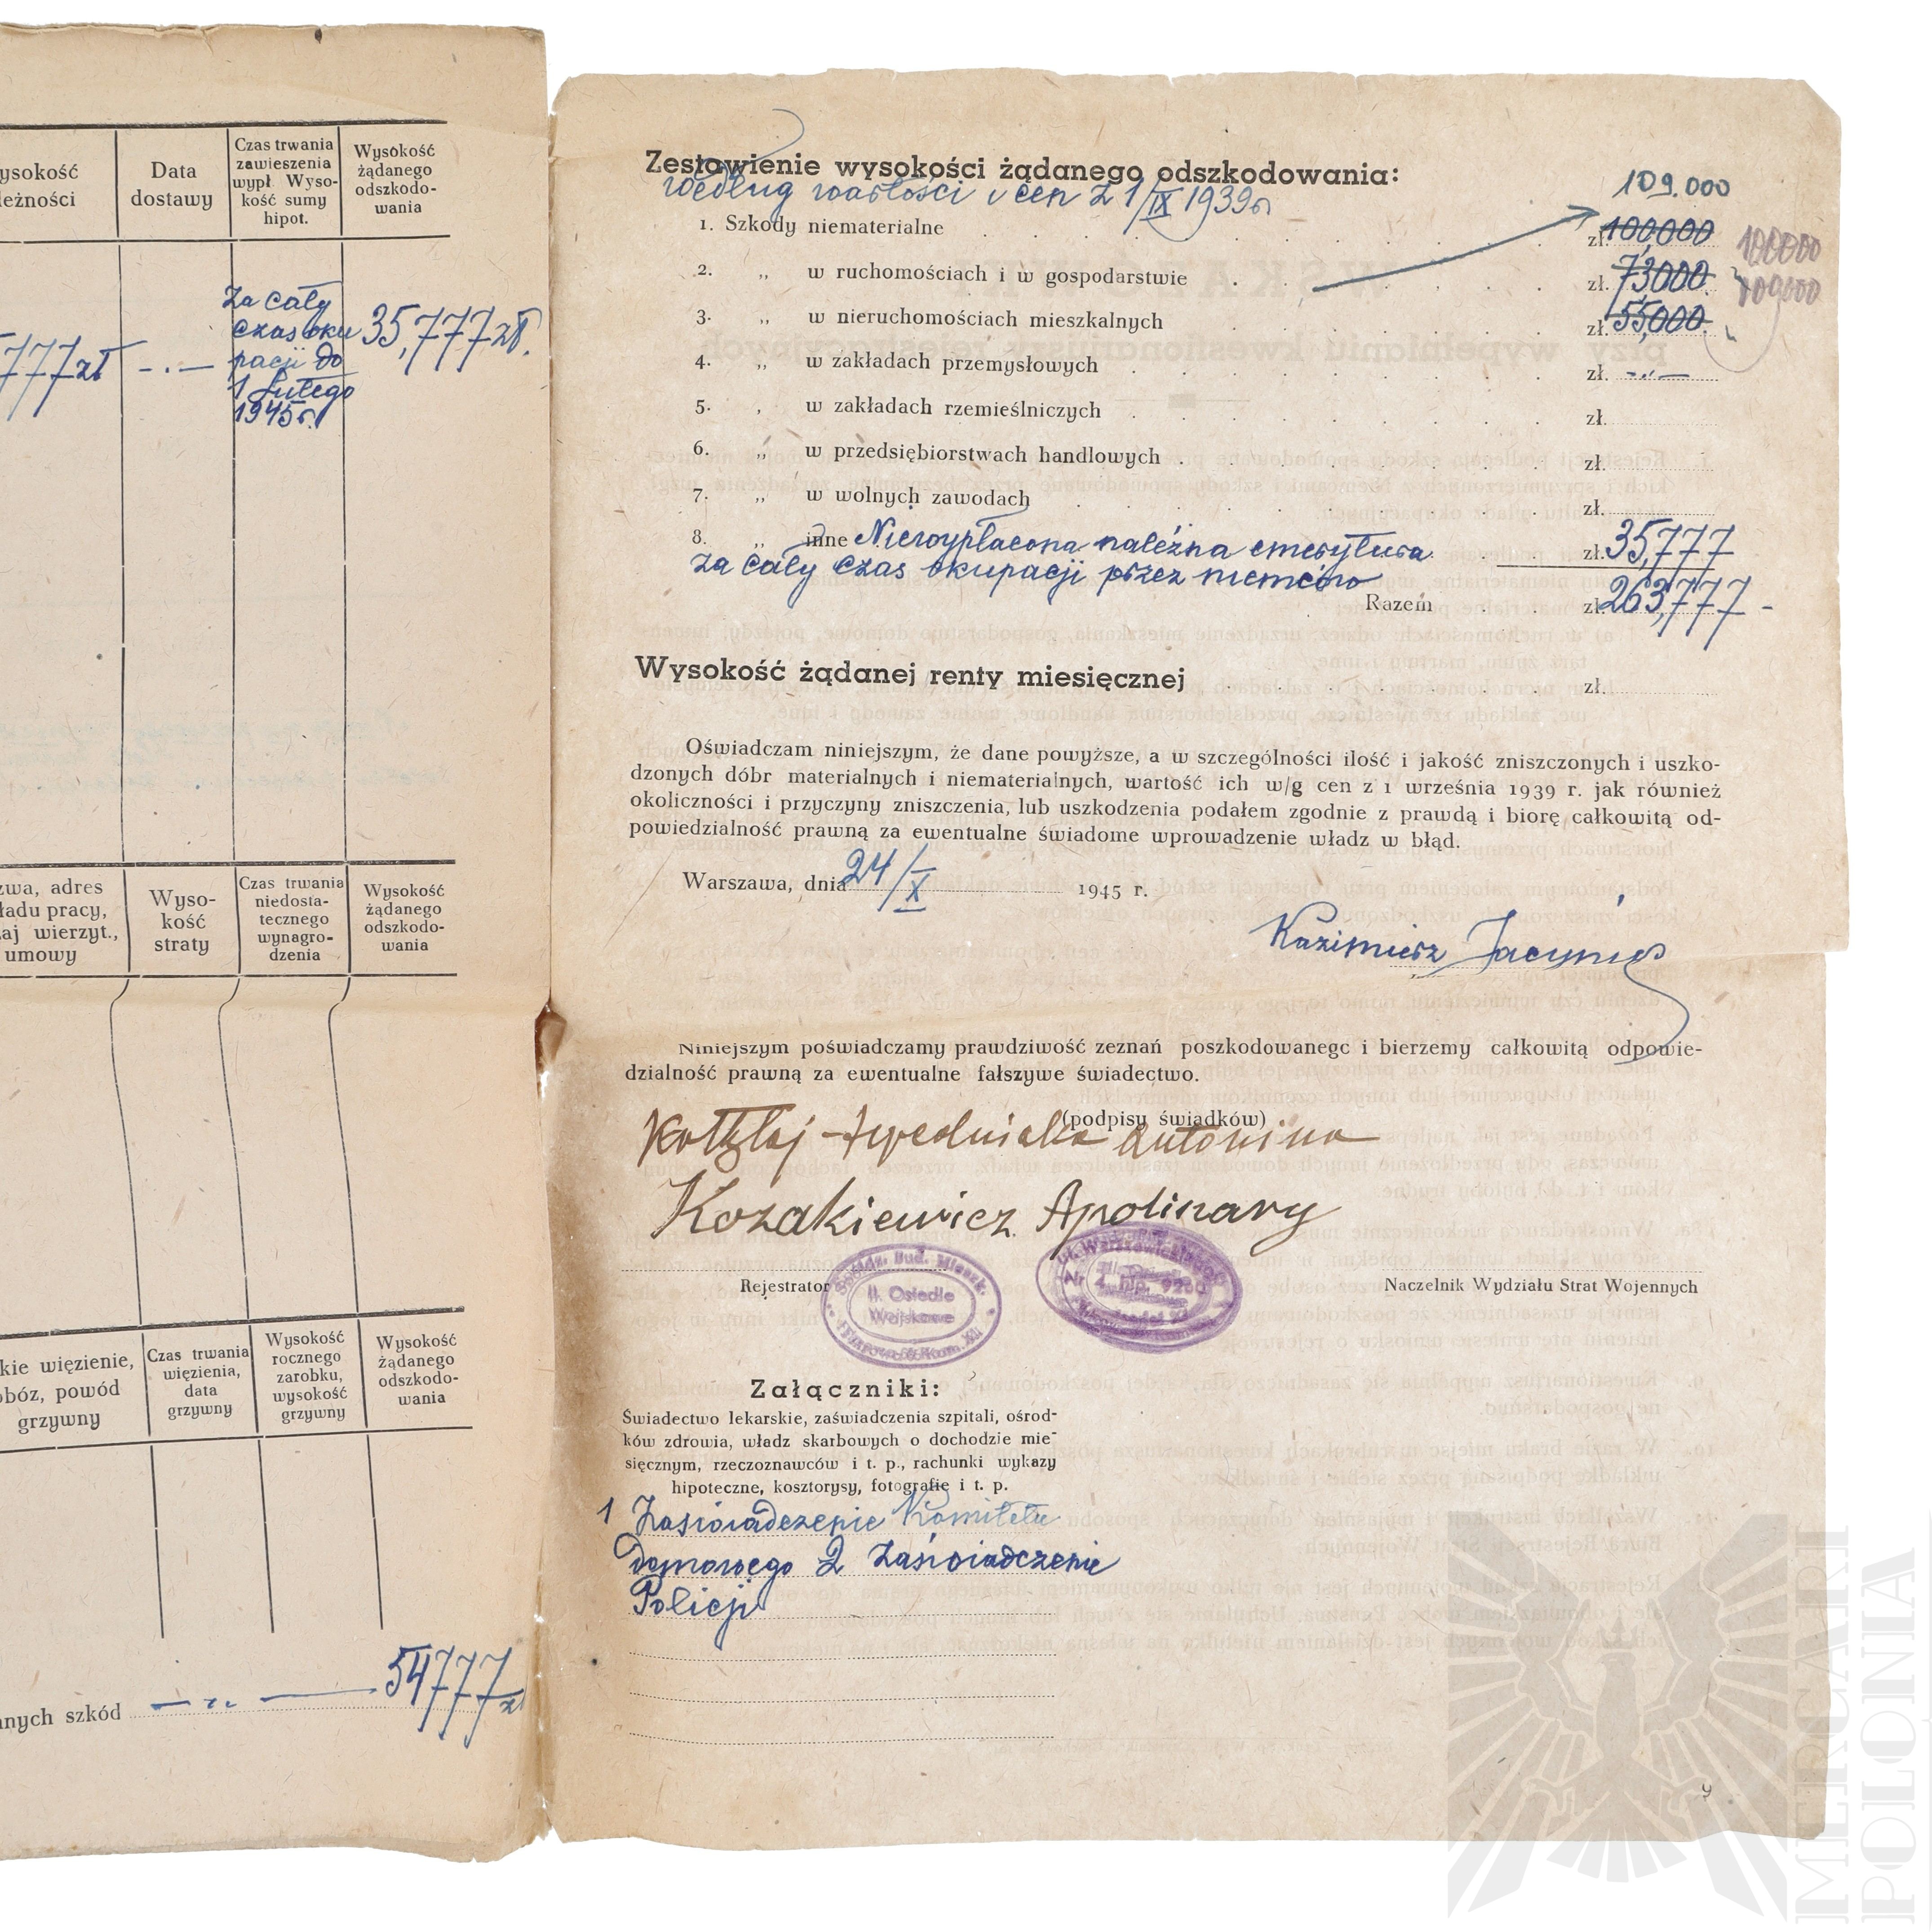 ysokość
leżności
Data
dostawy
Czas trwania
zawieszenia
wypł. Wyso-
kość sumy
hipot.
Wysokość
żądanego
odszkodo-
wania
777 zł
— . —
Za cały
czas oku
pacji do
1 Lutego
1945 r.
35,777 zł.
zwa, adres
ładu pracy,
aj wierzyt.,
umowy
Wyso-
kość
straty
Czas trwania
niedosta-
tecznego
wynagro-
dzenia
Wysokość
żądanego
odszkodo-
wania
kie więzienie,
obóz, powód
grzywny
Czas trwania
więzienia,
data
grzywny
Wysokość
rocznego
zarobku,
wysokość
grzywny
Wysokość
żądanego
odszkodo-
wania
anych szkód 54777 zł
Zestawienie wysokości żądanego odszkodowania:
według wartości i cen z 1/IX 1939 r.
109.000
1. Szkody niematerialne zł. 100,000 100000
2. „ w ruchomościach i w gospodarstwie zł. 73000
3. „ w nieruchomościach mieszkalnych zł. 55,000
4. „ w zakładach przemysłowych zł. —
5. „ w zakładach rzemieślniczych zł.
6. „ w przedsiębiorstwach handlowych zł.
7. „ w wolnych zawodach zł.
8. „ inne Niewypłacona należna emerytura zł. 35,777
za cały czas okupacji przez niemców
Razem zł. 263,777 -
Wysokość żądanej renty miesięcznej zł.
Oświadczam niniejszym, że dane powyższe, a w szczególności ilość i jakość zniszczonych i uszko-
dzonych dóbr materialnych i niematerialnych, wartość ich w/g cen z 1 września 1939 r. jak również
okoliczności i przyczyny zniszczenia, lub uszkodzenia podałem zgodnie z prawdą i biorę całkowitą od-
powiedzialność prawną za ewentualne świadome wprowadzenie władz w błąd.
Warszawa, dnia 24/X 1945 r.
Kazimierz
Niniejszym poświadczamy prawdziwość zeznań poszkodowanego i bierzemy całkowitą odpowie-
dzialność prawną za ewentualne fałszywe świadectwo.
(podpisy świadków)
Antonina
Kozakiewicz Apolinary
Rejestrator
Naczelnik Wydziału Strat Wojennych
Spółdz. Bud. Mieszk.
II. Osiedle
Wojskowe
ul. Warszawicka
Nr 4 hip. 9200
Załączniki:
Świadectwo lekarskie, zaświadczenia szpitali, ośrod-
ków zdrowia, władz skarbowych o dochodzie mie-
sięcznym, rzeczoznawców i t. p., rachunki wykazy
hipoteczne, kosztorysy, fotografie i t. p.
1 Zaświadczenie Komitetu
domowego 2 Zaświadczenie
Policji
MERCARI
POLONIA